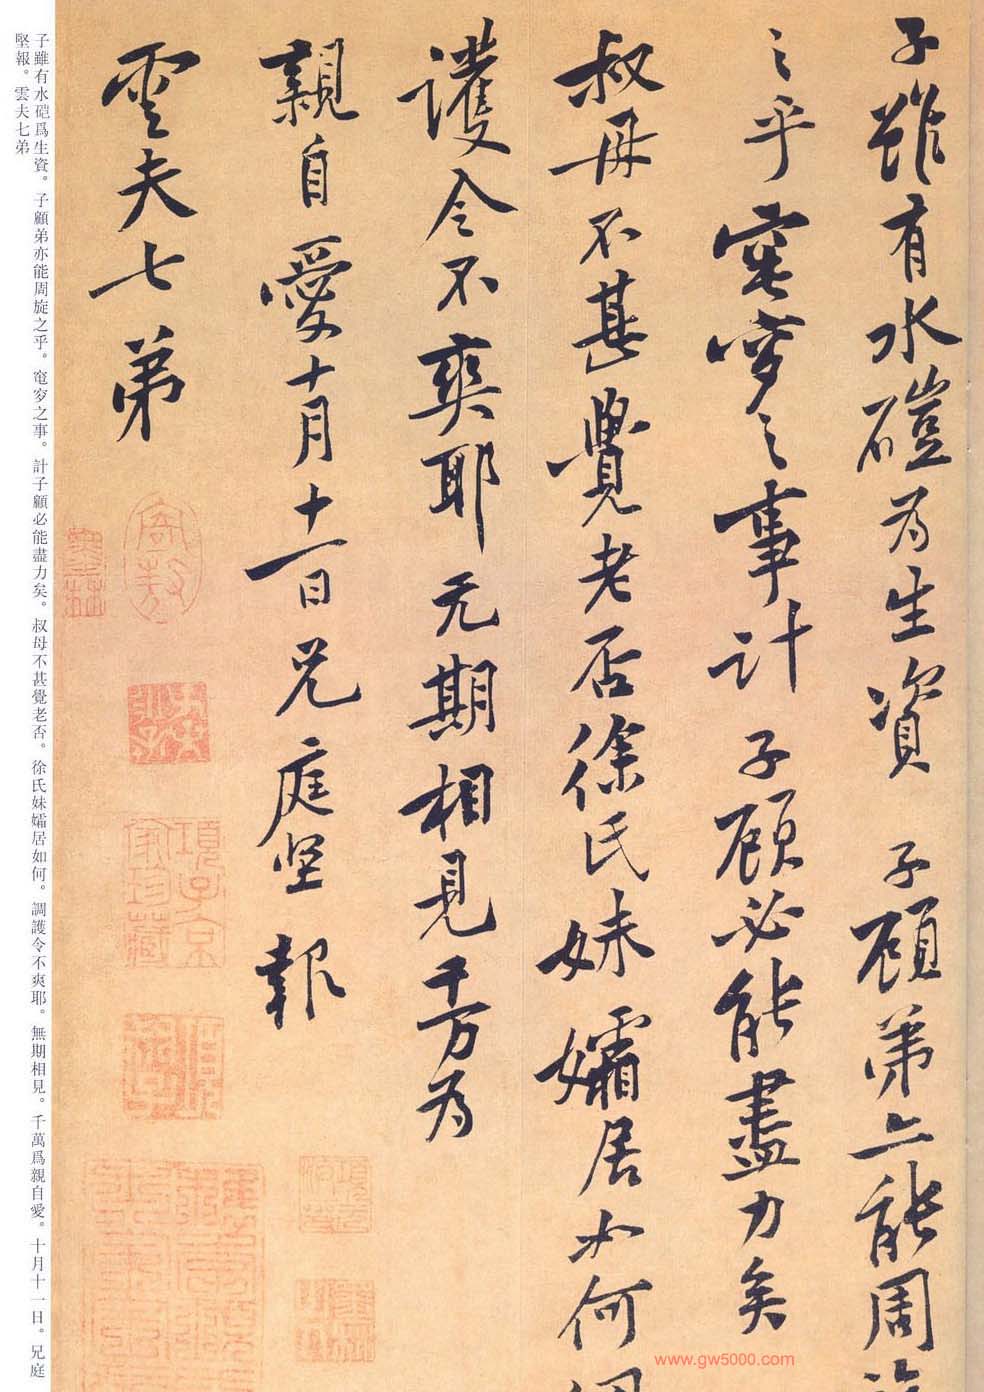 子雖有水磑为生資子顧弟亦能周旋
之乎窀穸之事計子顧必能盡力矣
叔母不甚覺老否徐氏妹孀居如何調
護令不爽耶无期相見千万为
親自愛十月十一日兄庭坚報
雲夫七弟
子雖有水磑爲生資。子顧弟亦能周旋之乎。窀穸之事。計子顧必能盡力矣。叔母不甚覺老否。徐氏妹孀居如何。調護令不爽耶。無期相見。千萬爲親自愛。十月十一日。兄庭
堅報。雲夫七弟
項子京
家珍藏
www.gw5000.com